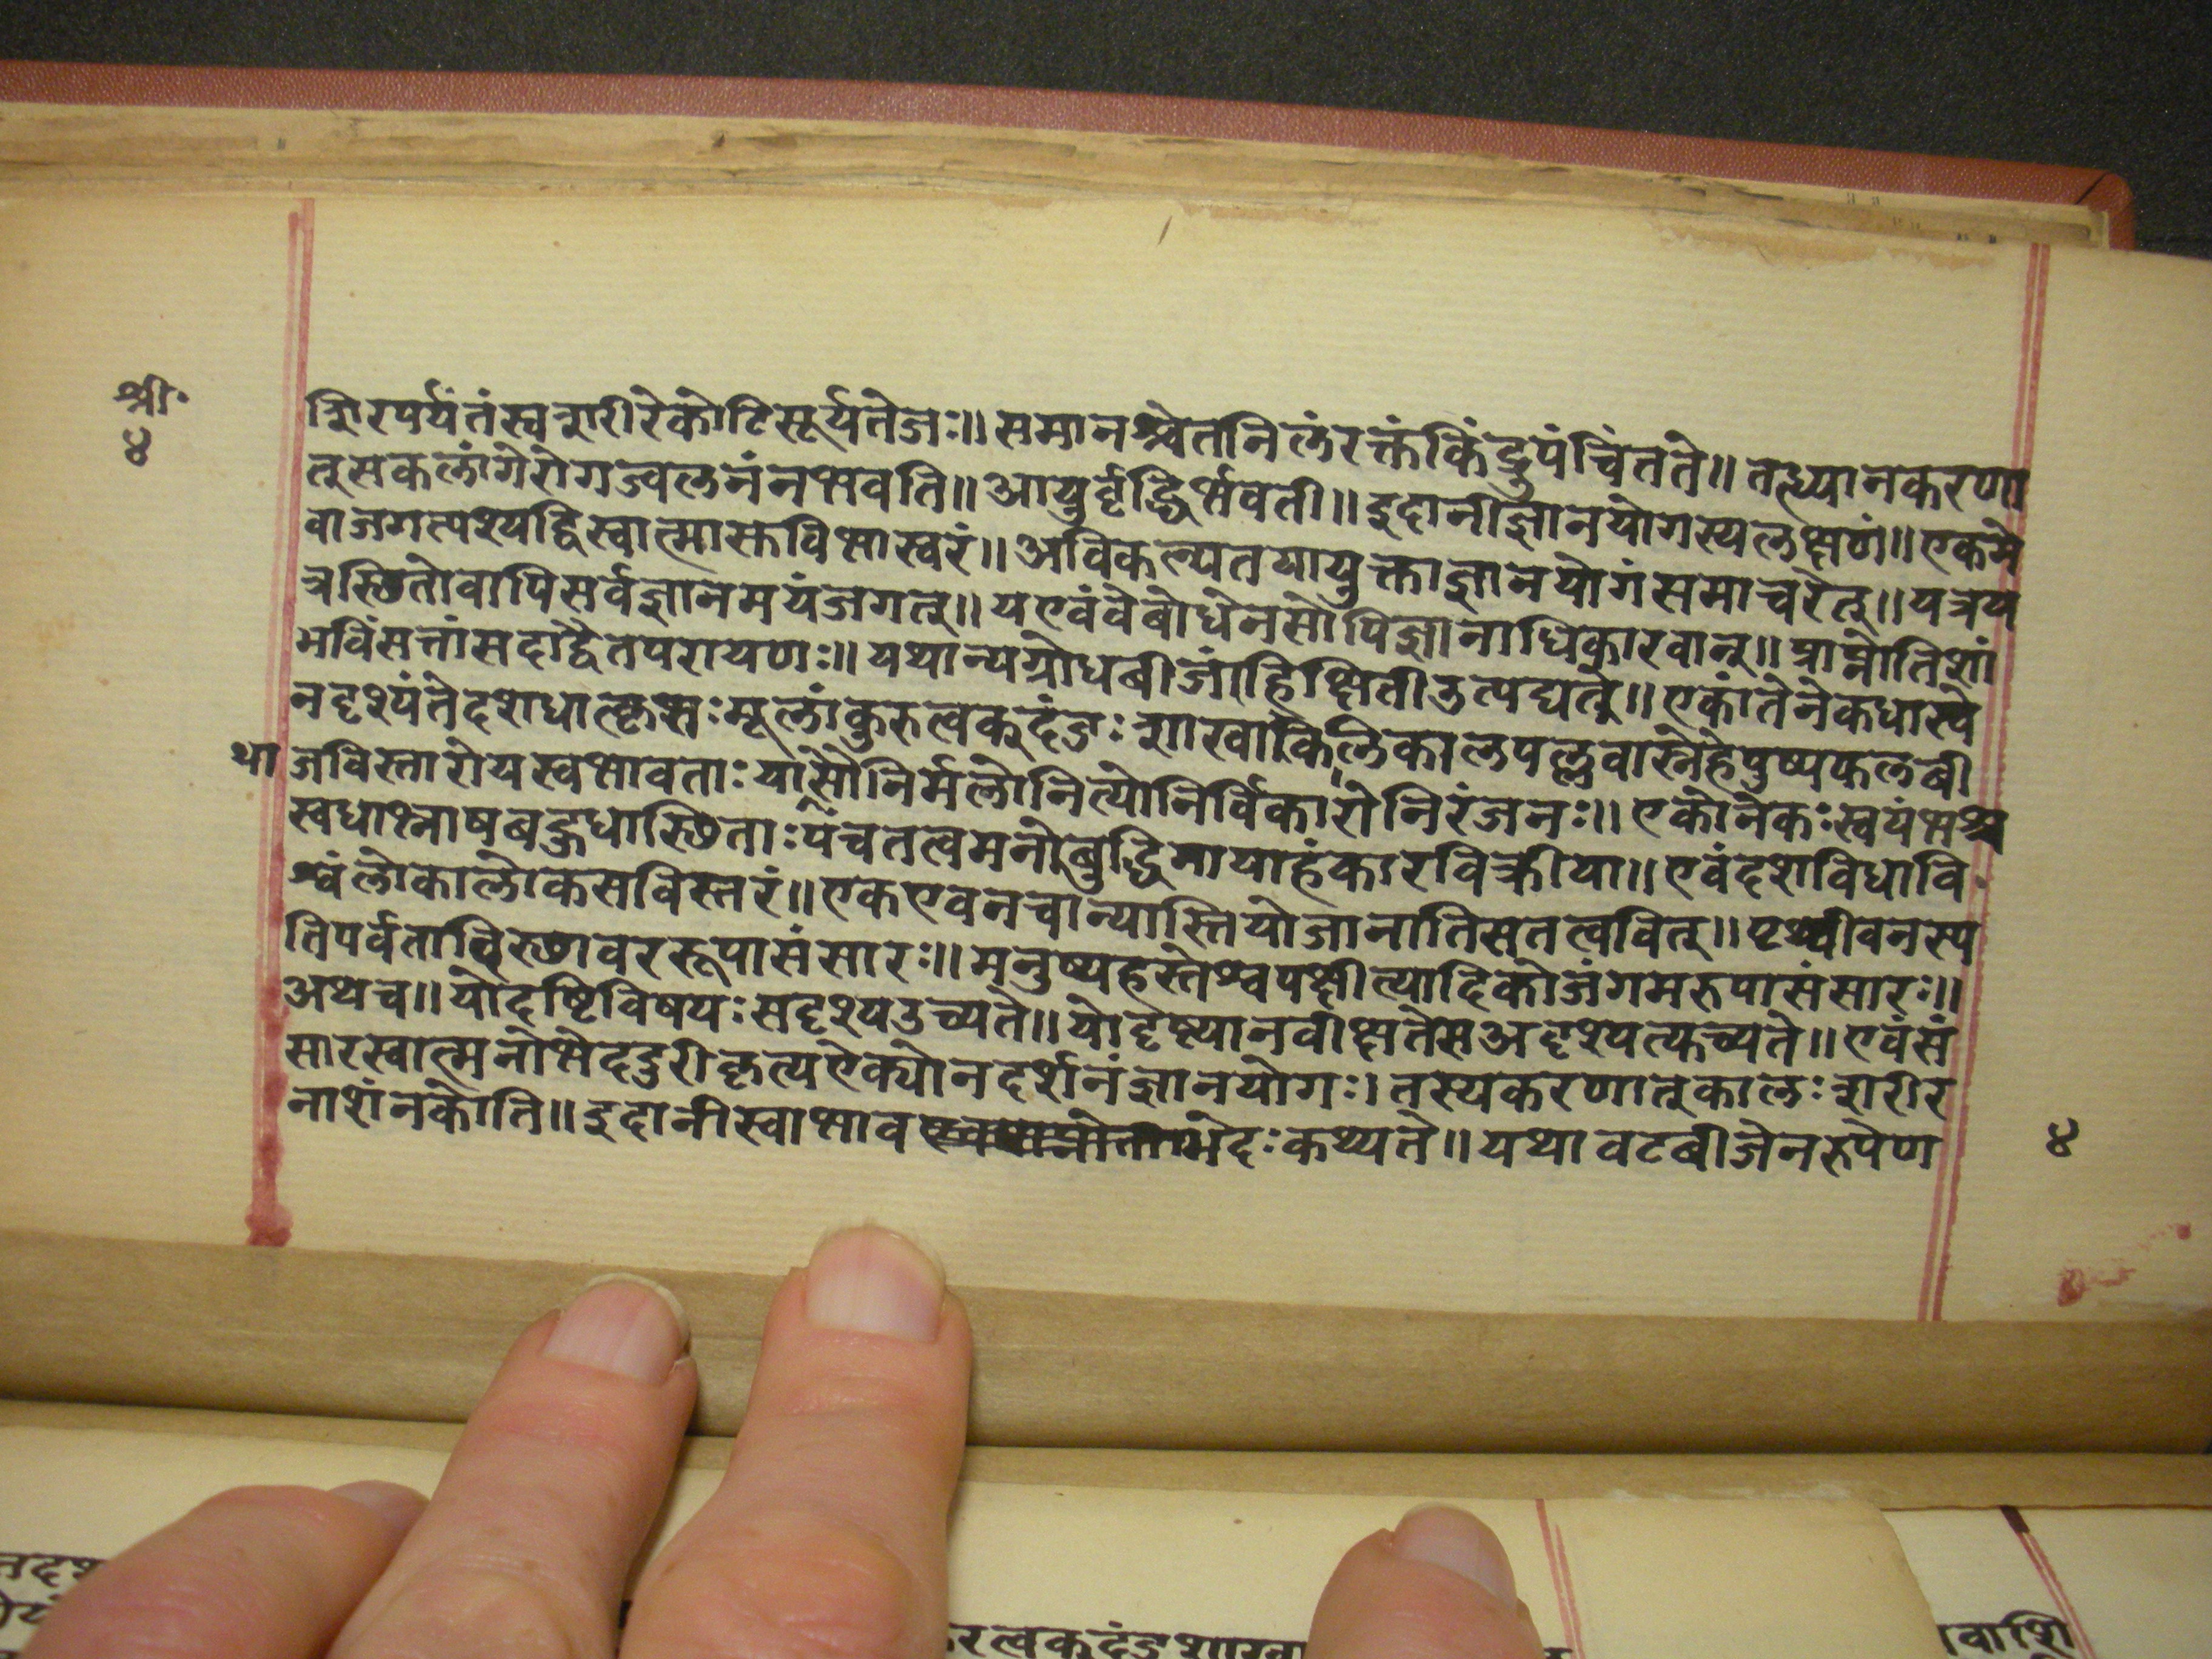 श्री॰
४
शिरपर्यंतंस्वशरीरेकोटिसूर्यतेजः॥ समानश्वेतनिलंरक्तंकिंद्रुपंचिंतते॥ तत्ध्यानकरणा
त्सकलांगेरोगज्वलनंनभवति॥ आयुर्वृद्धिर्भवती॥ इदानीज्ञानयोगस्यलक्षणं॥ एकमे
वाजगत्पश्यद्धिस्वात्मास्तविभास्वरं॥ अविकल्पतयायुक्ताज्ञानयोगंसमाचरेत्॥ यत्रय
त्रस्छितोवापिसर्वज्ञानमयंजगत्॥ यएवंवेबोधेनसोपिज्ञानाधिकारवान्॥ प्राप्नोतिशां
भविंसत्तांसदाद्वैतपरायणः॥ यथान्यग्रोधबीजांहिक्षितीउत्पद्यत्॥ एकांतेनेकधास्ये
नदृश्यंतेदशधात्कृभः मूलांकुरुत्वकूदंडः शाखाकिलिकालपल्लवास्नेहेपुष्पफलबी
था जविस्तारोयस्वभावताः यासौनिर्मलोनित्योनिर्विकारोनिरंजनः॥ एकोनेकः स्वयंभश्व
स्वधाश्नाषबहुधास्छिताः पंचतत्वमनोबुद्धिमायाहंकारविक्रीया॥ एवंदशविधावि
श्वंलोकालोकसविस्तरं॥ एकएवनचान्यास्तियोजानातिसतत्ववित्॥ पृथ्वीवनस्प
तिपर्वतास्थिरुछावररूपासंसारः॥ मनुष्यहस्तेश्वपक्षीत्यादिकोजंगमरुपासंसारः॥
अथच॥ योदष्टिविषयः सदृश्यउच्यते॥ योदृष्ट्यानवीक्षतेसअदृश्यत्यकच्यते॥ एवंसं
सारस्वात्मनोभेददुरीकृत्यऐक्योनदर्शनंज्ञानयोगः। तस्यकरणात्कालः शरीर
नाशंनकोति॥ इदानीस्वाभाव भेदः कथ्यते॥ यथावटबीजेनरुपेण
४
रत्वकूदंडशाखा
वाशि